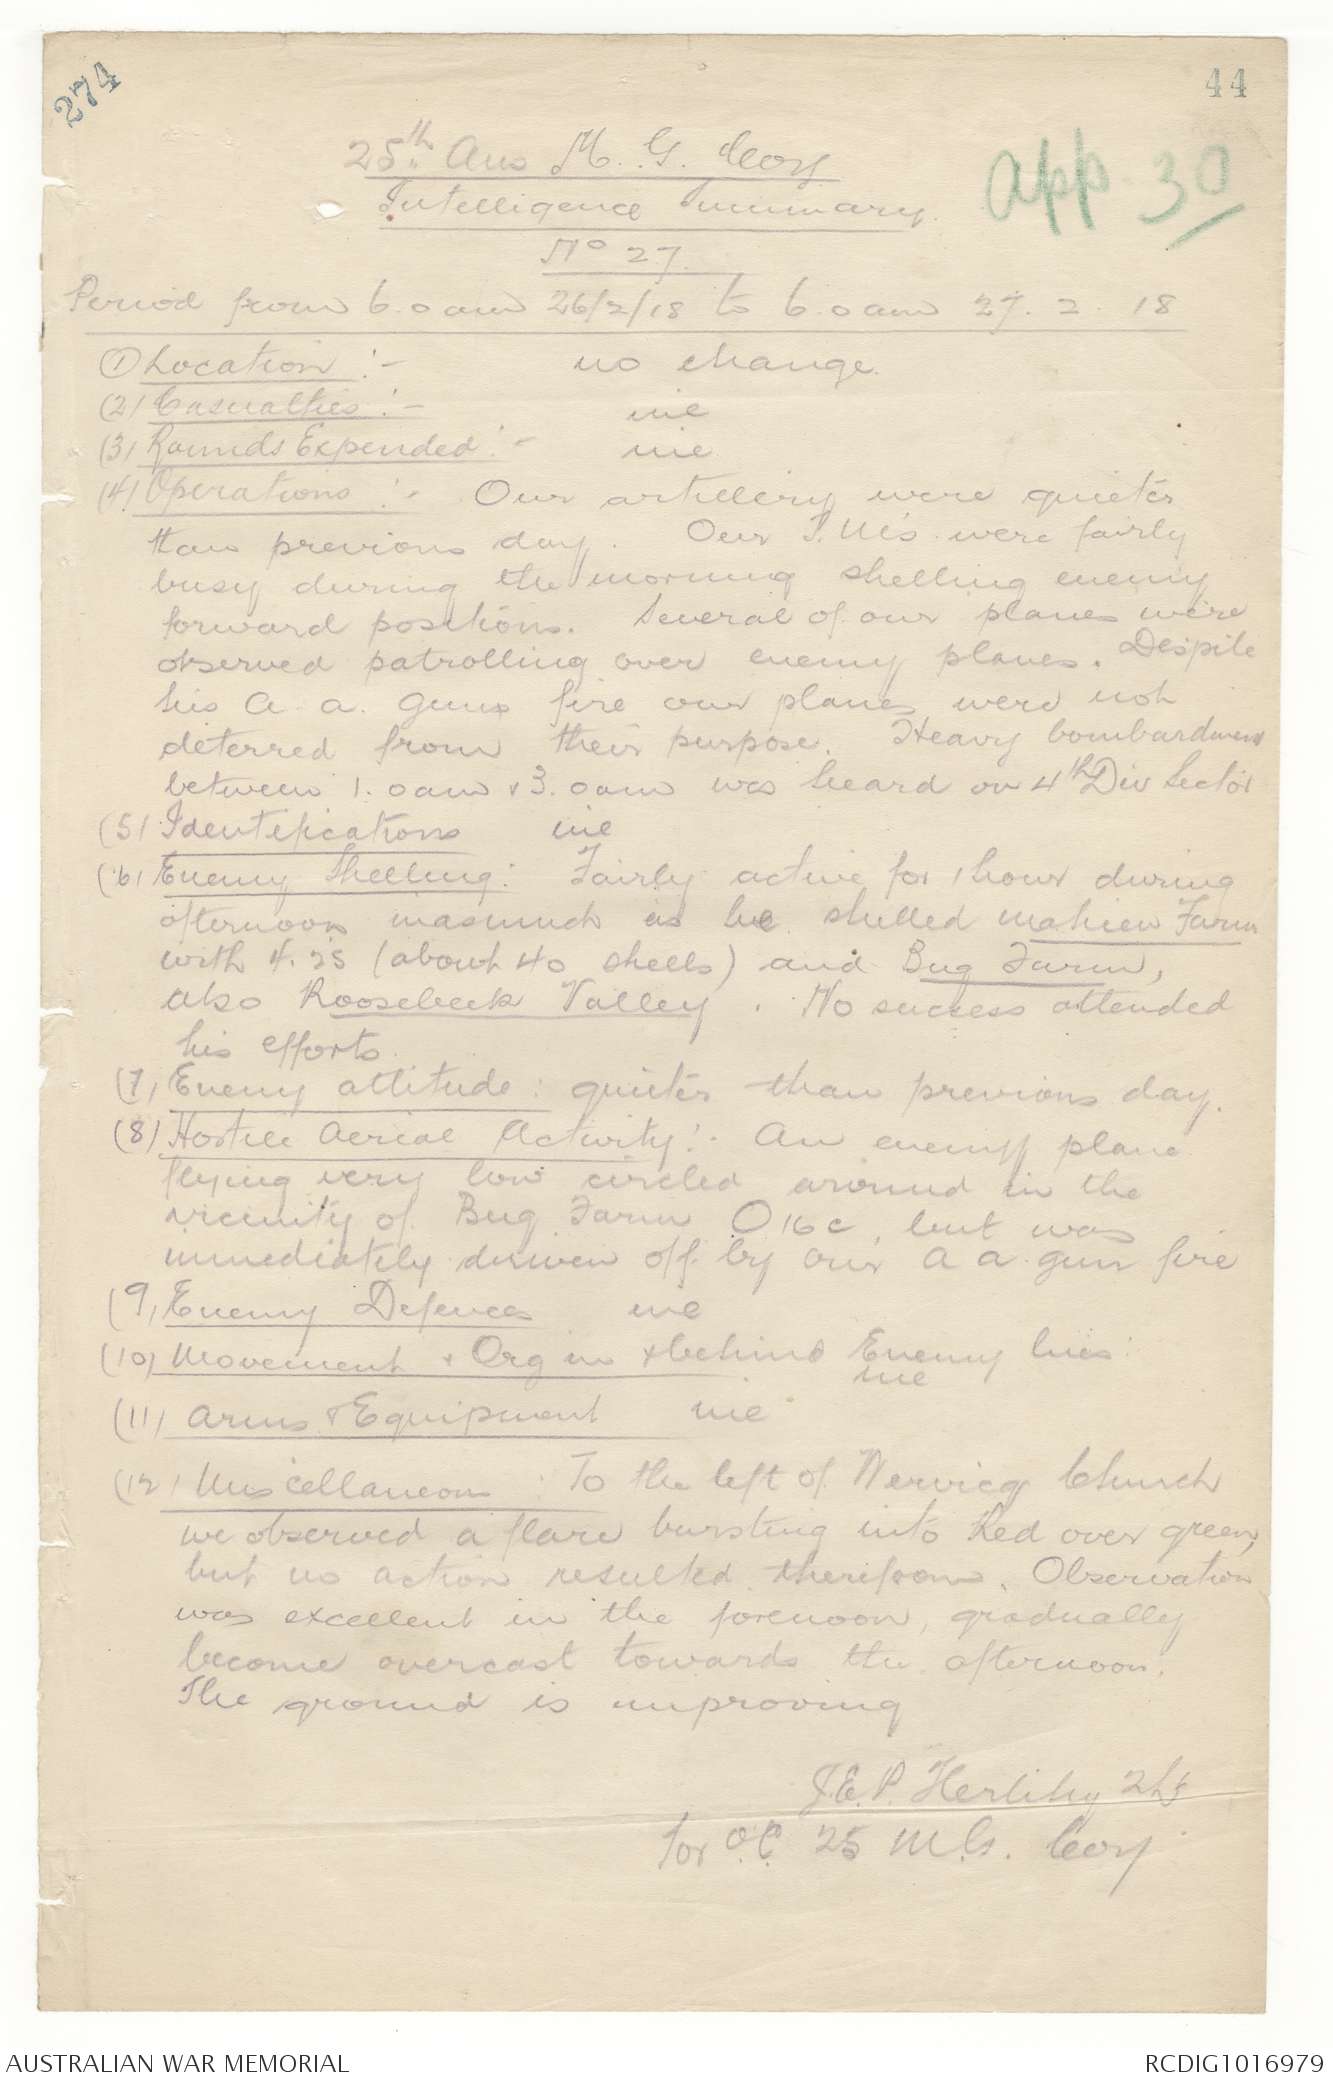 274
44
App. 30
25th Aus M. G. Coy
Intelligence Summary.
No 27.
Period from 6.0am 26/2/18 to 6.0am 27.2.18
(1) Location :- no change.
(2) Casualties :- nil
(3) Rounds Expended :- nil
(4) Operations :- Our artillery were quieter
than previous day. Our T.M's were fairly
busy during the morning shelling enemy
forward positions. Several of our planes were
observed patrolling over enemy planes. Despite
his A. A. Guns fire our planes were not
deterred from their purpose. Heavy bombardment
between 1.0am & 3.0am was heard on 4th Div Sector
(5) Identifications nil
(6) Enemy Shelling: Fairly active for 1 hour during
afternoon inasmuch as he shelled Mahieu Farm
with 4.2s (about 40 shells) and Bug Farm,
also Roosebeek Valley. No success attended
his efforts.
(7) Enemy attitude: quieter than previous day.
(8) Hostile Aerial Activity:- An enemy plane
flying very low circled around in the
vicinity of Bug Farm O16c, but was
immediately driven off by our A A gun fire
(9) Enemy Defences nil
(10) Movement & Org in & behind Enemy lines:
nil
(11) Arms & Equipment nil
(12) Miscellaneous: To the left of Wervicq Church
we observed a flare bursting into Red over green,
but no action resulted therefrom. Observation
was excellent in the forenoon, gradually
become overcast towards the afternoon.
The ground is improving
J.E.P. Herlihy 2Lt
for O.C. 25 M.G. Coy
AUSTRALIAN WAR MEMORIAL
RCDIG1016979